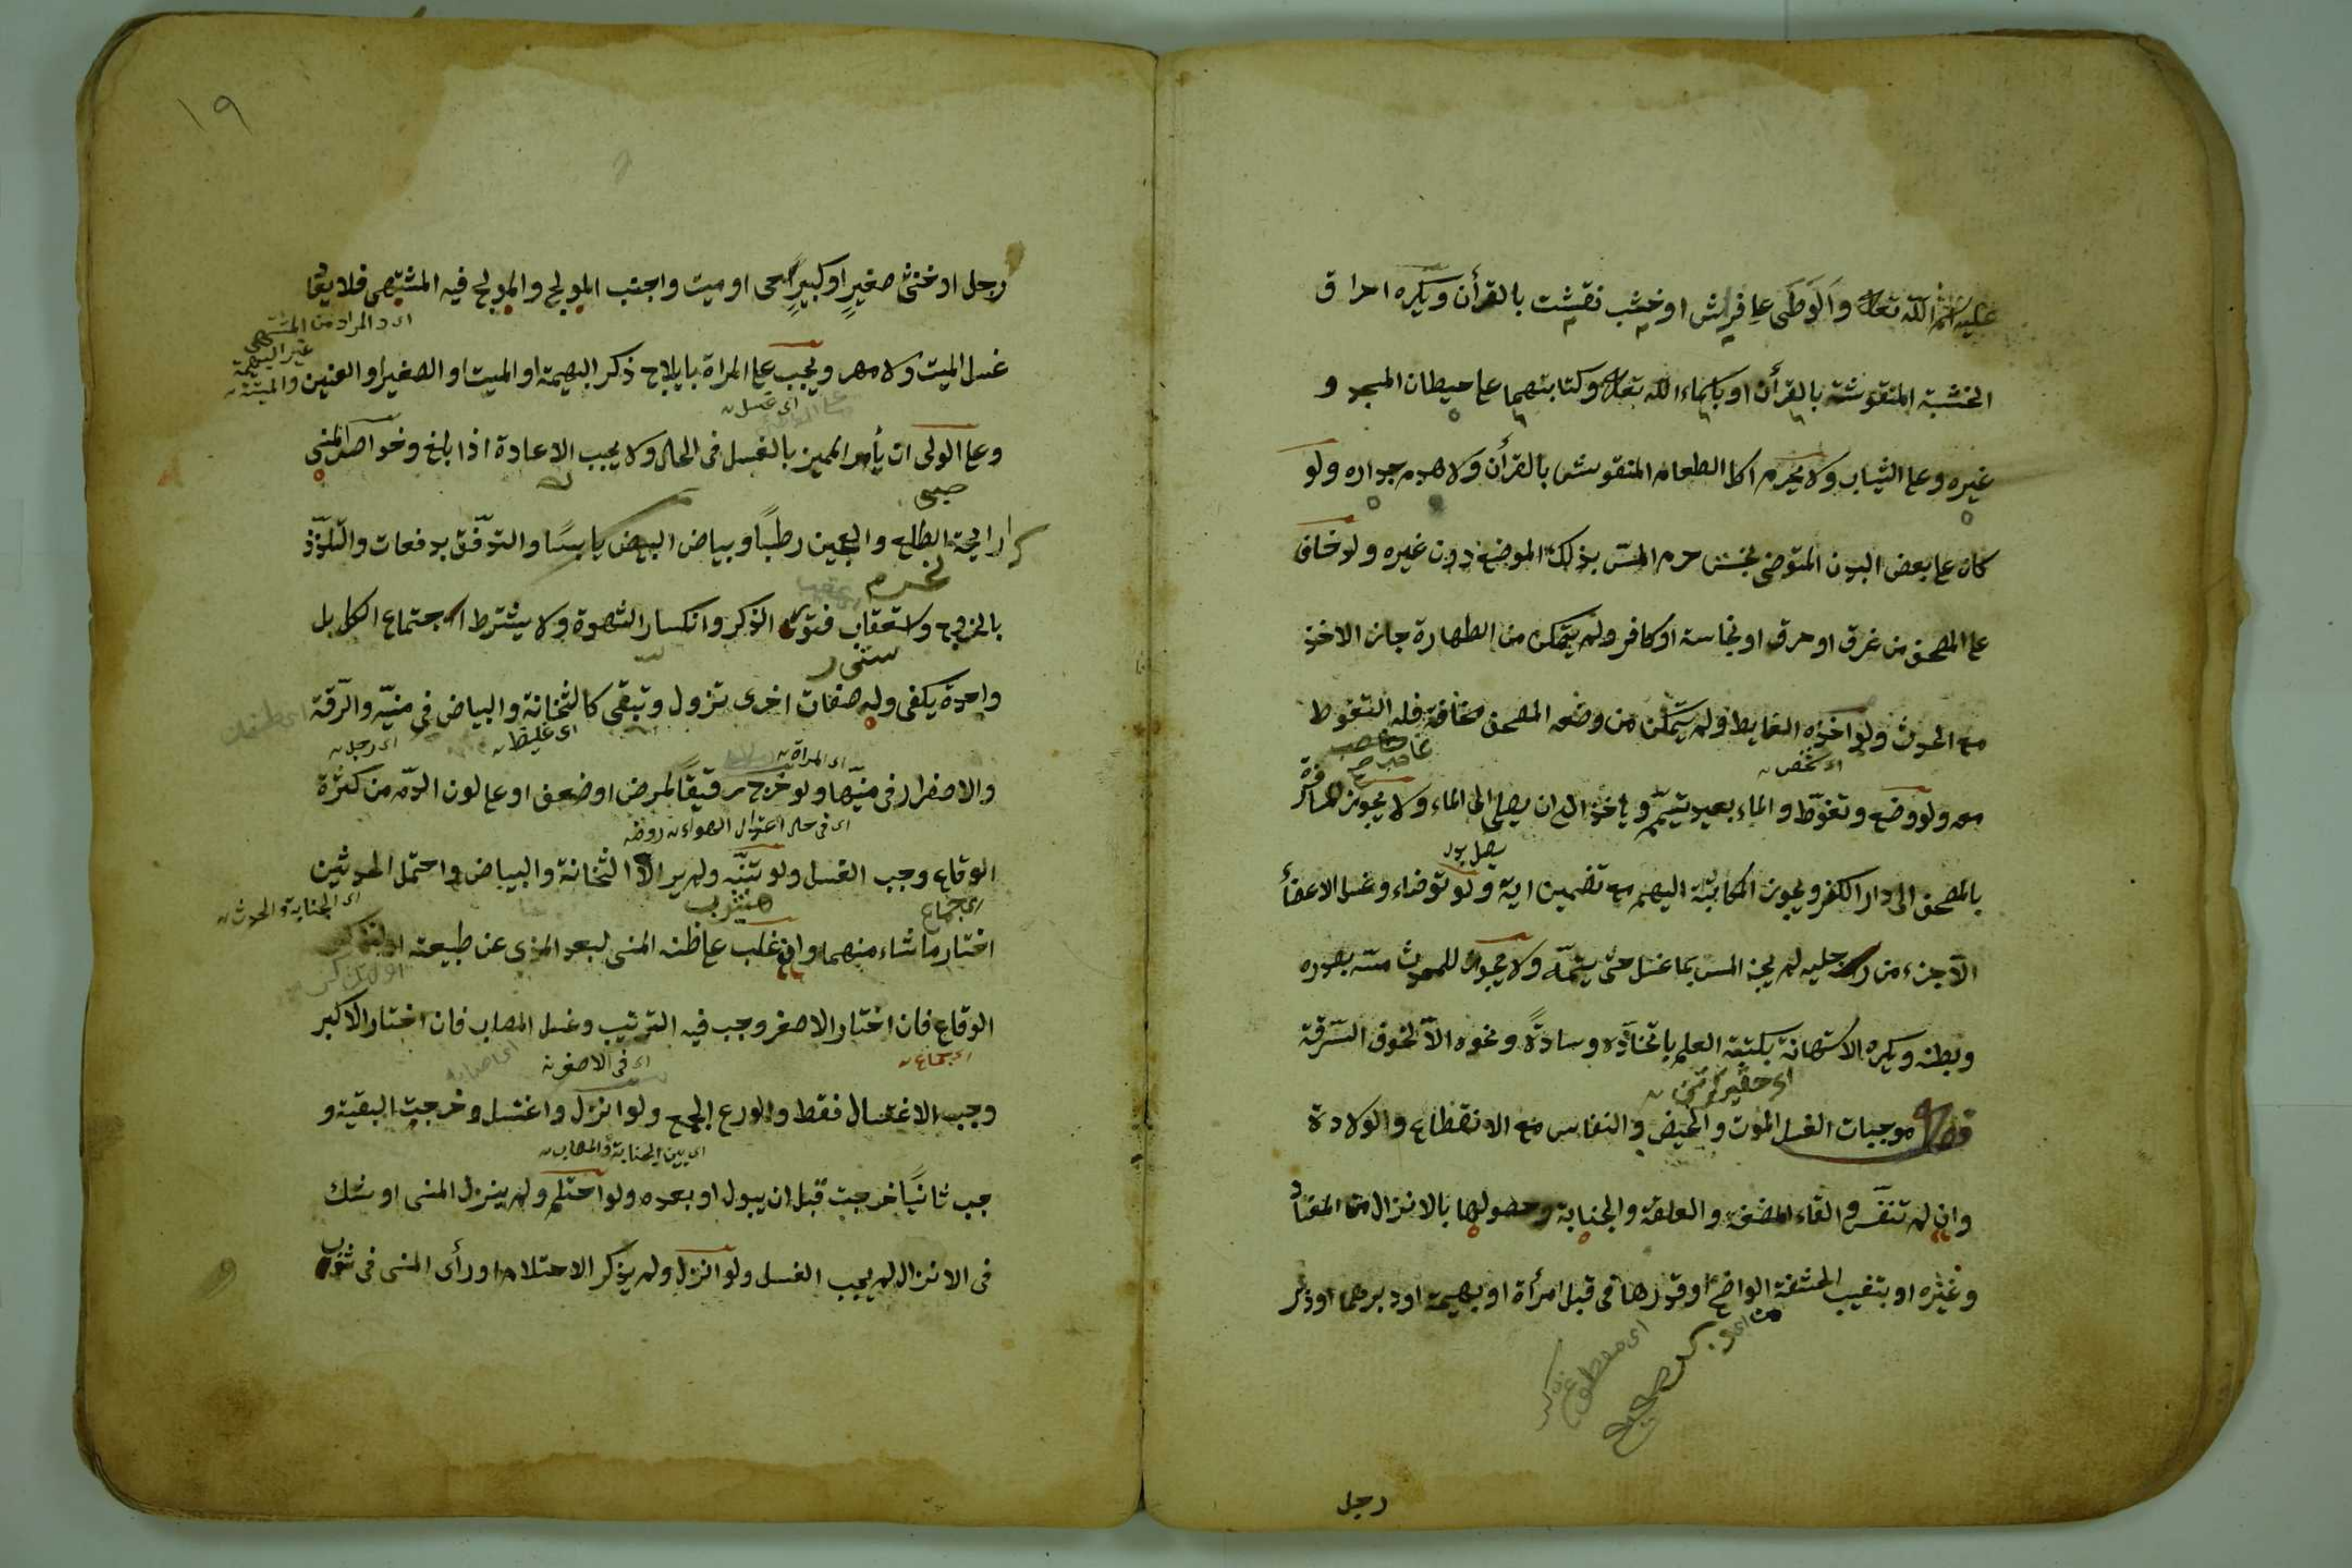 عليه اسم الله تعالى والوطئ على فراش او خشب نقشت بالقرأن ويكره احراق
الخشبة المنقوشة بالقرأن او باسماء الله تعالى وكتابتهما على حيطان المسجد و
غيره وعلى الثياب ولا يحرم اكل الطعام المنقوش بالقرأن ولا هدم جداره ولو
كان على بعض البدن المتوضى نجس حرم المس بذلك الموضع دون غيره ولو خاف
على المصحف من غرق او حرق او نجاسة او كافر ولم يتمكن من الطهارة جاز الاخذ
مع الحدث ولو اخذه الغايط ولم يتمكن من وضع المصحف مخافة فله التغوط
اى شخص
معه ولو وضع وتغوّط والماء بعيد تيمّم وياخذ الى ان يصل الى الماء ولا يجوز المسافرة
بالمصحف الى دار الكفر ويجوز المكاتبة اليهم مع تضمين اية ولو توضاء وغسل الاعضأ
الاّ جزء من رجليه لم يجز المس بما غسل حتى يتمّه ولا يجوز للمحدث مسه بصدره
وبطنه ويكره الاستهانة بكتبة العلم باتخاذه وسادةً ونحوه الاّ لخوف السّرقة
فصل موجبات الغسل الموت والحيض والنفاس مع الانقطاع والولادة
وان لم تنفس والقاء المضغة والعلقة والجنابة وحصولها بالانزال من المعتاد
وغيره او بتغييب الحشفة الواضح او قدرها فى قبل امرأة او بهيمة او دبرهما او دبر
رجل
١٩
رجل او خنثى صغيرٍ او كبيرٍ حى او ميت واجنب المولج والمولج فيه المشتهى فلا يعاد
اى والمراد من المشتهى
غير البهيمة
والميتة
غسل الميت ولا مهر ويجب على المراة بايلاج ذكر البهيمة او الميت او الصغير او العنين
اى غسل
وعلى الولى ان يأمر المميز بالغسل فى الحال ولا يجب الاعادة اذا بلغ وخواص المنى
رايحة الطلع والعجين رطبًا وبياض البيض يابسًا والتدفّق بدفعات والتلذّذ
بالخروج واستعقاب فتور الذكر وانكسار الشهوة ولا يشترط اجتماع الكل بل
واحدة يكفى وله صفات اخرى تزول وتبقى كالثخانة والبياض فى منيّه والرّقة
اى غليظ
اى رجل
اى المراة
والاصفرار فى منيّها ولو خرج رقيقًا لمرض او ضعف او على لون الدّم من كثرة
اى فى حال اعتدال الهواء روضه
الوقاع وجب الغسل ولو تنبّه ولم ير الاّ الثخانة والبياض واحتمل الحدثين
اى الجنابة والحدث
اختار ما شاء منهما وان غلب على ظنه المنى لبعد المذى عن طبيعته او
الوقاع فان اختار الاصغر وجب فيه الترتيب وغسل المصاب فان اختار الاكبر
اى جماع
اى فى الاصغر
وجب الاغتسال فقط والورع الجمع ولو انزل واغتسل وخرجت البقية و
اى بين الجنابة والمصاب
جب ثانيًا خرجت قبل ان يبول او بعده ولو احتلم ولم ينزل المنى او شك
فى الانزال لم يجب الغسل ولو انزل ولم يذكر الاحتلام او رأى المنى فى ثوب